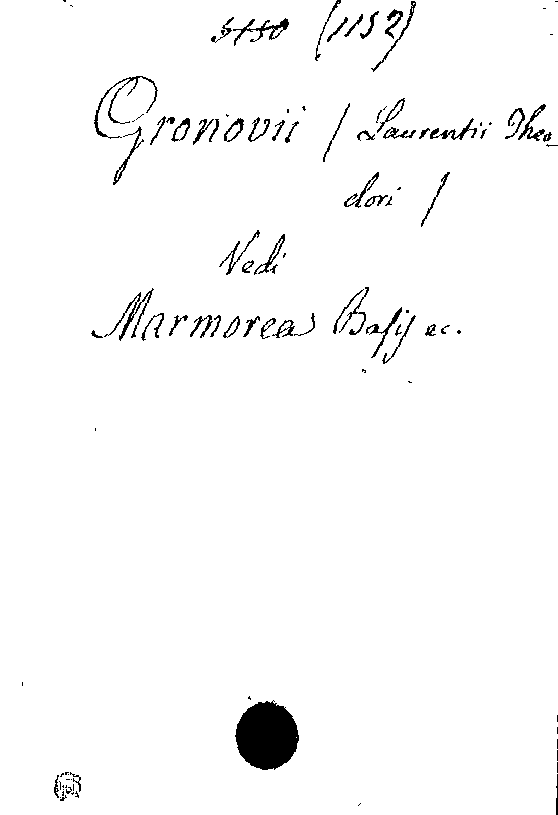 5150 (1152)
Gronovii / Laurentii Theo_
dori /
Vedi
Marmorea Basis ec.